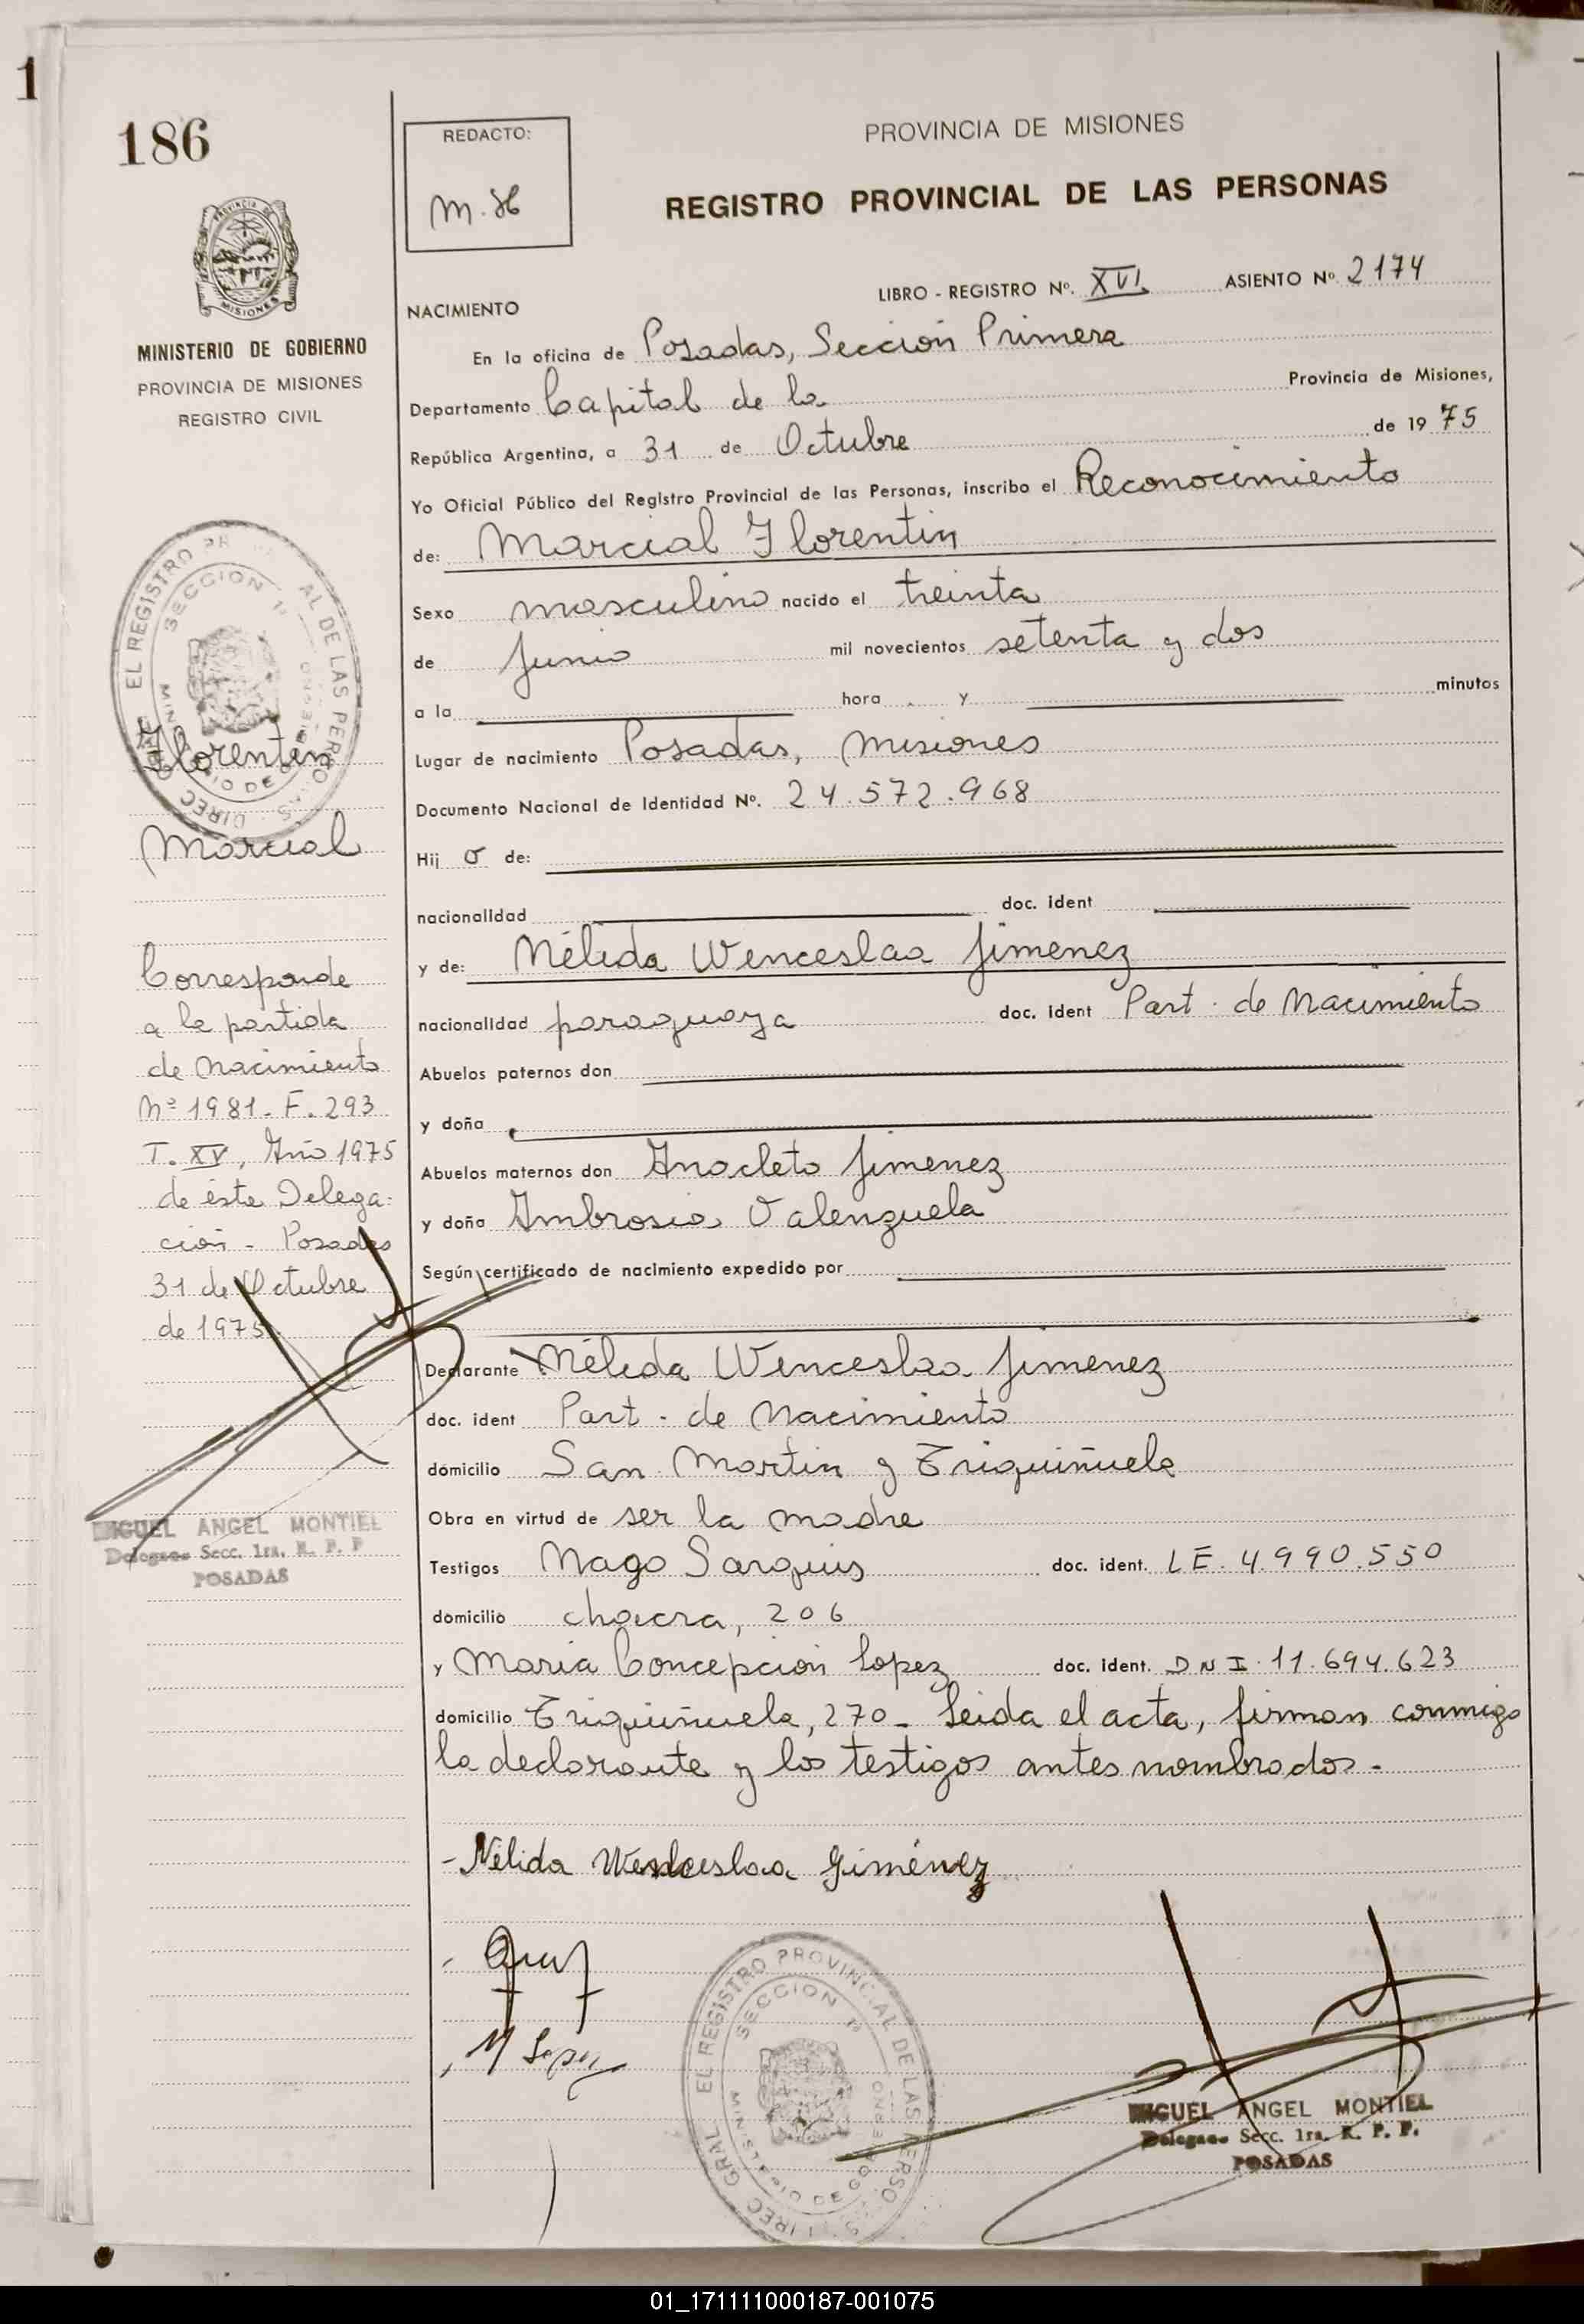 1
186
REDACTO:
M.H
PROVINCIA DE MISIONES
REGISTRO PROVINCIAL DE LAS PERSONAS
PROVINCIA DE
MISIONES
MINISTERIO DE GOBIERNO
PROVINCIA DE MISIONES
REGISTRO CIVIL
LIBRO - REGISTRO Nº. XVI ASIENTO Nº 2174
NACIMIENTO
En la oficina de Posadas, Sección Primera
Departamento Capital de la Provincia de Misiones,
República Argentina, a 31 de Octubre de 19 75
Yo Oficial Público del Registro Provincial de las Personas, inscribo el Reconocimiento
de: Marcial Florentin
Sexo masculino nacido el treinta
de Junio mil novecientos setenta y dos
a la hora y minutos
Lugar de nacimiento Posadas, Misiones
Documento Nacional de Identidad Nº. 24.572.968
Hij o de:
nacionalidad doc. ident
y de: Nélida Wenceslaa Jimenez
nacionalidad paraguaya doc. ident Part. de Nacimiento
Abuelos paternos don
y doña
Abuelos maternos don Anacleto Jimenez
y doña Ambrosia Valenzuela
Según certificado de nacimiento expedido por
Declarante Nélida Wenceslaa Jimenez
doc. ident Part. de Nacimiento
domicilio San Martin y Triquiñuela
Obra en virtud de ser la madre
Testigos Nago Sarquis doc. ident. LE. 4.990.550
domicilio chacra, 206
y Maria Concepción Lopez doc. ident. DNI 11.694.623
domicilio Triquiñuela, 270_ Leida el acta, firman conmigo
la declarante y los testigos antes nombrados.-
- Nélida Wenceslaa Giménez
M Lopez
EL REGISTRO PROVINCIAL DE LAS PERSONAS
SECCION 1ª
MINISTERIO DE GOBIERNO
DIREC GRAL
MIGUEL ANGEL MONTIEL
Delegado Secc. 1ra. R. P. P.
POSADAS
EL REGISTRO PR AL DE LAS PERSO
SECCION 1ª
Florentin
Marcial
Corresponde
a la partida
de Nacimiento
Nº 1981. F. 293
T. XV, Año 1975
de ésta Delega-
ción - Posadas
31 de Octubre
de 1975
MIGUEL ANGEL MONTIEL
Delegado Secc. 1ra. R. P. P
POSADAS
01_171111000187-001075